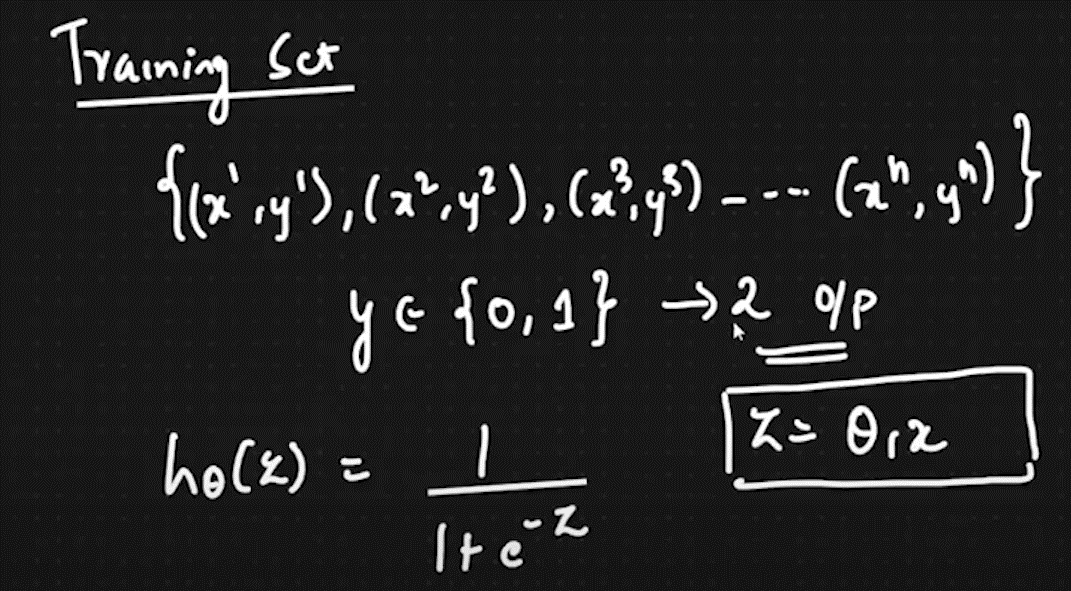 Training Set
{(x¹,y¹), (x²,y²), (x³,y³) - --- (xⁿ, yⁿ)}
y ∈ {0, 1} → 2 O/P
z = θ₁x
hθ(z) = 1 / 1 + e⁻ᶻ